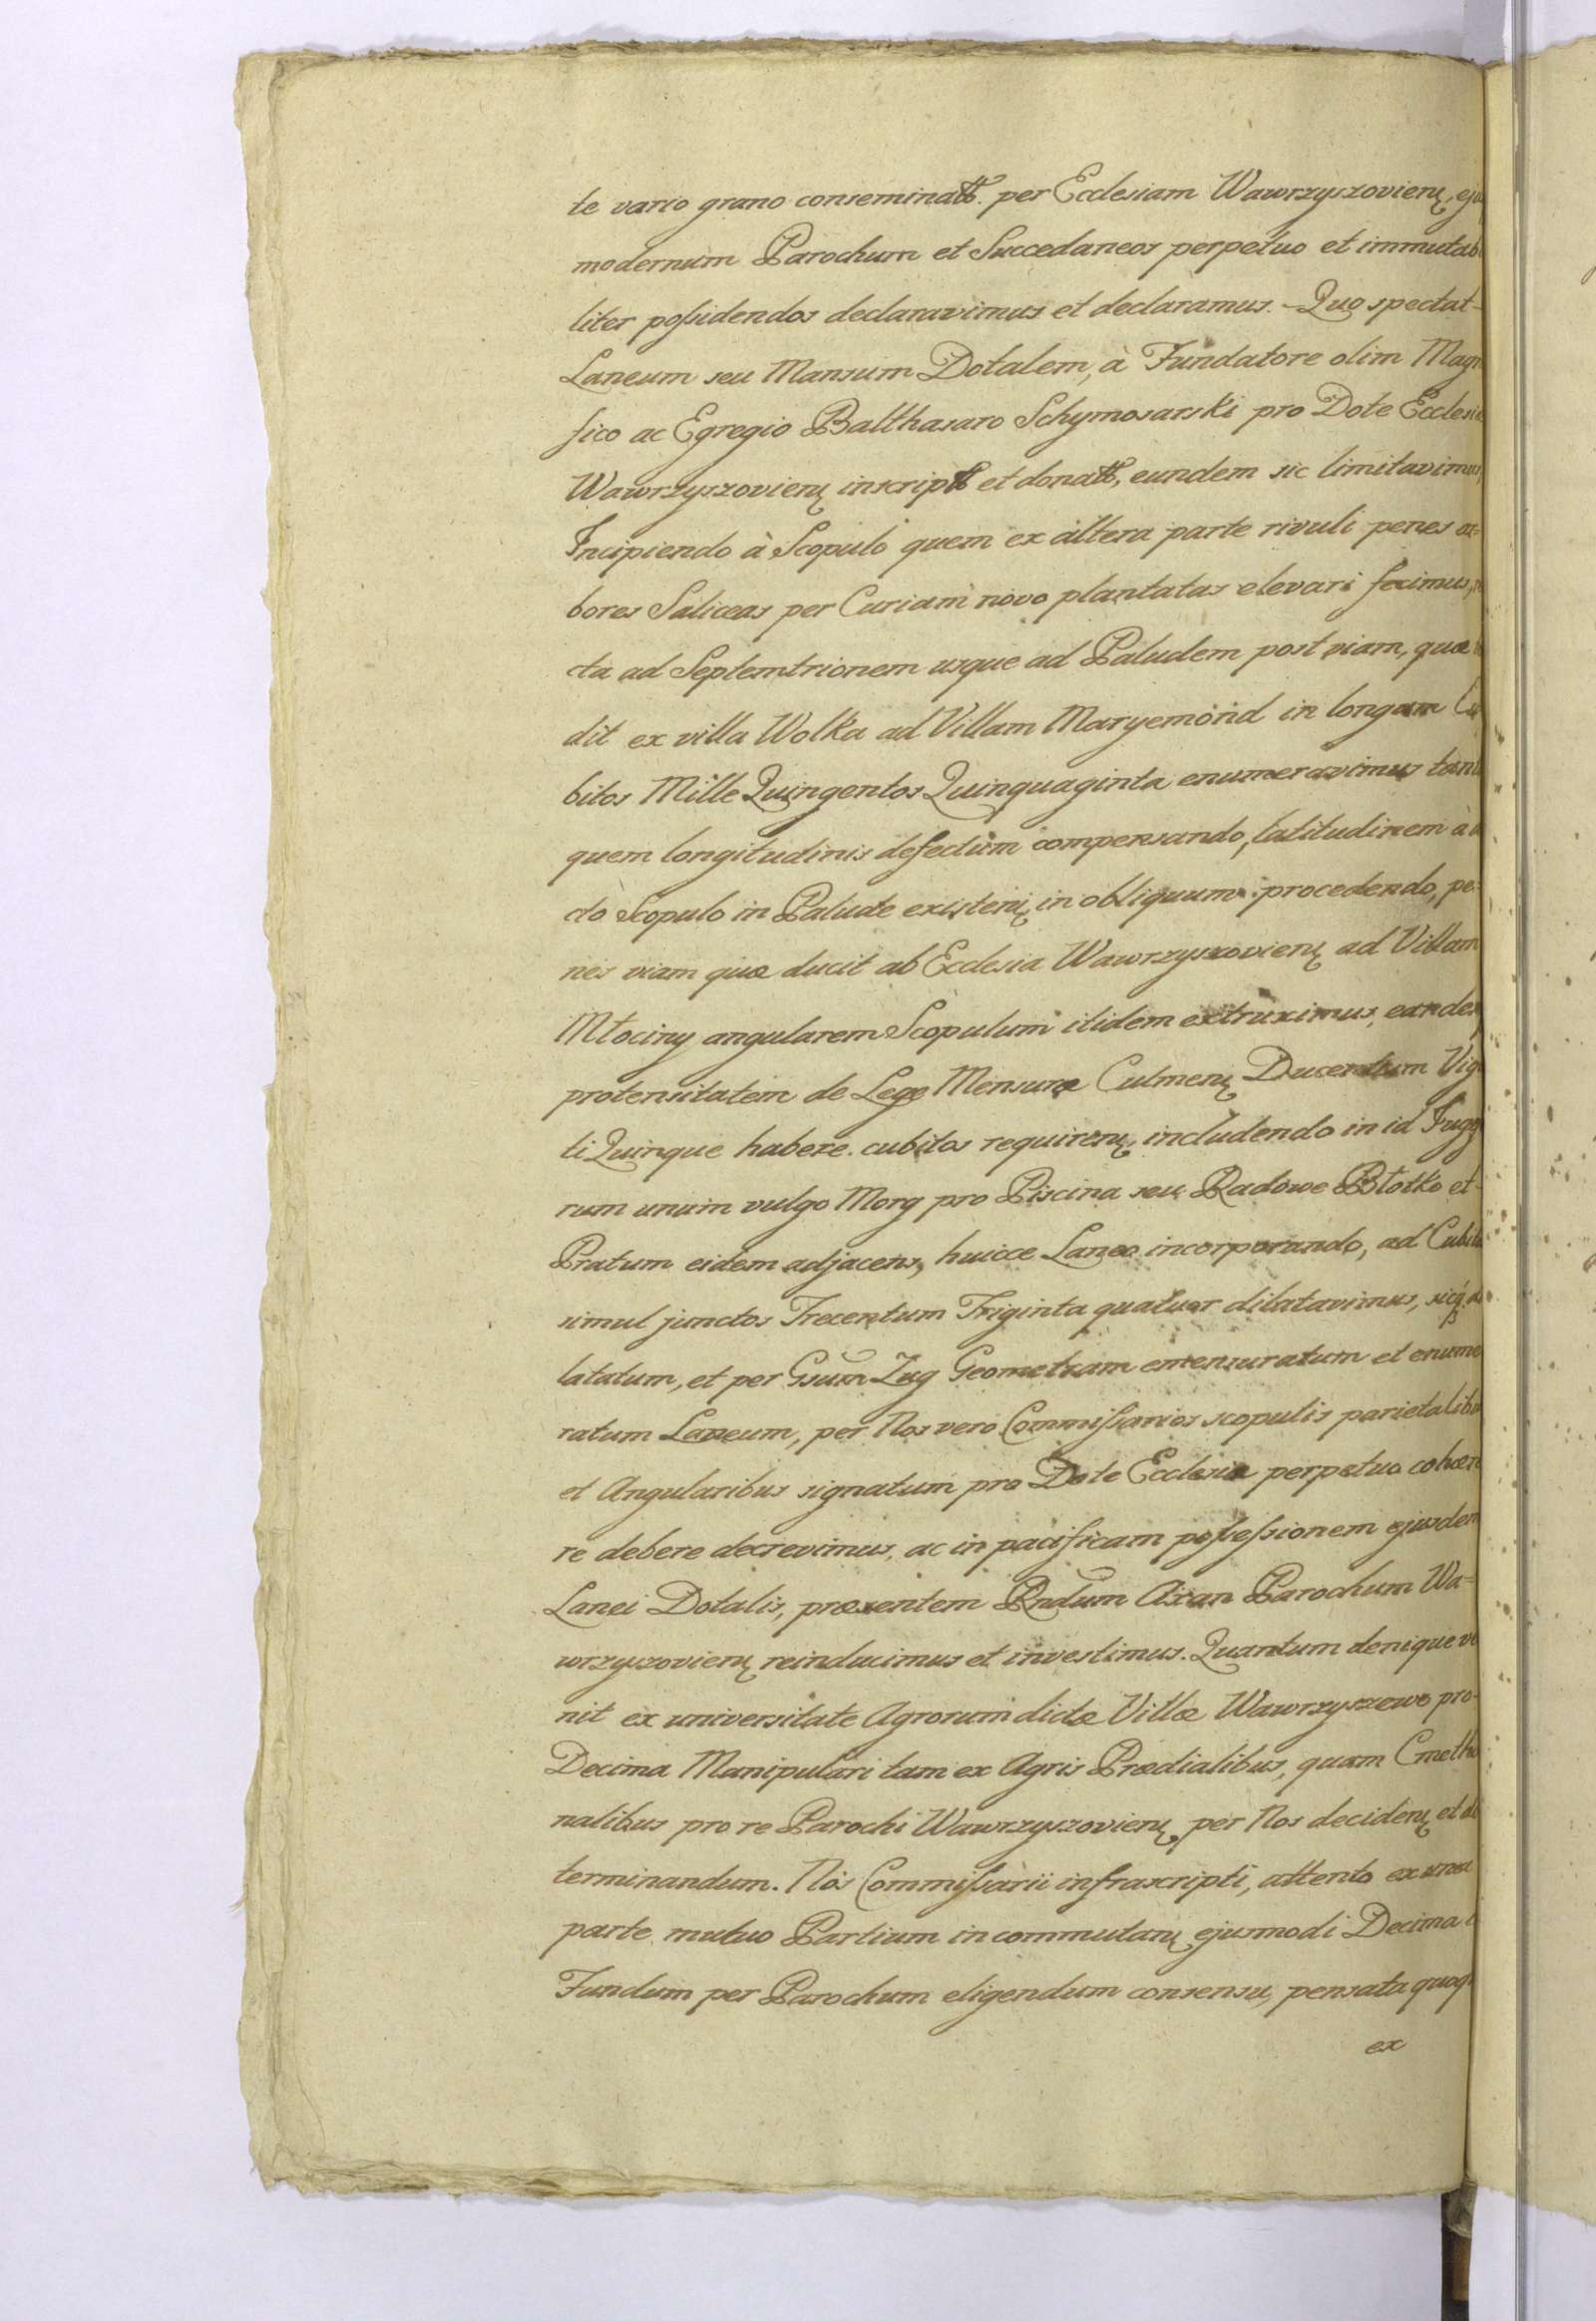 te vario grano conseminatt. per Ecclesiam Wawrzyszovien,
modernum Parochum et Succedaneos perpetuo et immutabi
liter possidendos declaravimus et declaramus. Quo spectat
Laneum seu Mansum Dotalem, à Fundatore olim Magn
fico ac Egregio Balthasaro Schymosarski pro Dote Ecclesiæ
Wawrzyszovien inscriptt et donatt, eundem sic limitavimus,
Incipiendo à Scopulo quem ex altera parte rivuli penes ar=
bores Saliceas per Curiam novo plantatas elevari fecimus,
cta ad Septemtrionem usque ad Paludem post viam, quæ
dit ex villa Wolka ad Villam Maryemond in longum Cu
bitos Mille Quingentos Quinquaginta enumeravimus
quem longitudinis defectum compensando, latitudinem à
cto Scopulo in Palude existen in obliquum procedendo, pe=
nes viam quæ ducit ab Ecclesia Wawrzyszovien ad Villam
Młociny angularem Scopulum itidem extruximus, eandem
protensitatem de Lege Mensuræ Culmen Ducentum Vigi
ti Quinque habere cubitos requiren, includendo in id Juge
rum unum vulgo Morg pro Piscina seu Radowe Błotko et
Pratum eidem adjacens, huicce Laneo incorporando, ad Cubitos
simul junctos Trecentum Triginta quatuor dilatavimus, sicq di
latatum, et per Gsum Zug Geometram emensuratum et enume
ratum Laneum, per Nos vero Commissarios scopulis parietalibus
et Angularibus signatum pro Dote Ecclesiæ perpetuo cohære
re debere decrevimus, ac in pacificam possessionem ejusdem
Lanei Dotalis, præsentem Rndum Axan Parochum Wa=
wrzyszovien reinducimus et investimus. Quantum denique ve
nit ex universitate Agrorum dictæ Villæ Wawrzyszewo pro
Decima Manipulari tam ex Agris Prædialibus, quam Cmetho
nalibus pro re Parochi Wawrzyszovien per Nos deciden et de
terminandum. Nos Commissarii infrascripti, attento ex una
parte mutuo Partium in commutan ejusmodi Decima
Fundum per Parochum eligendum consensu, pensata quoq
ex